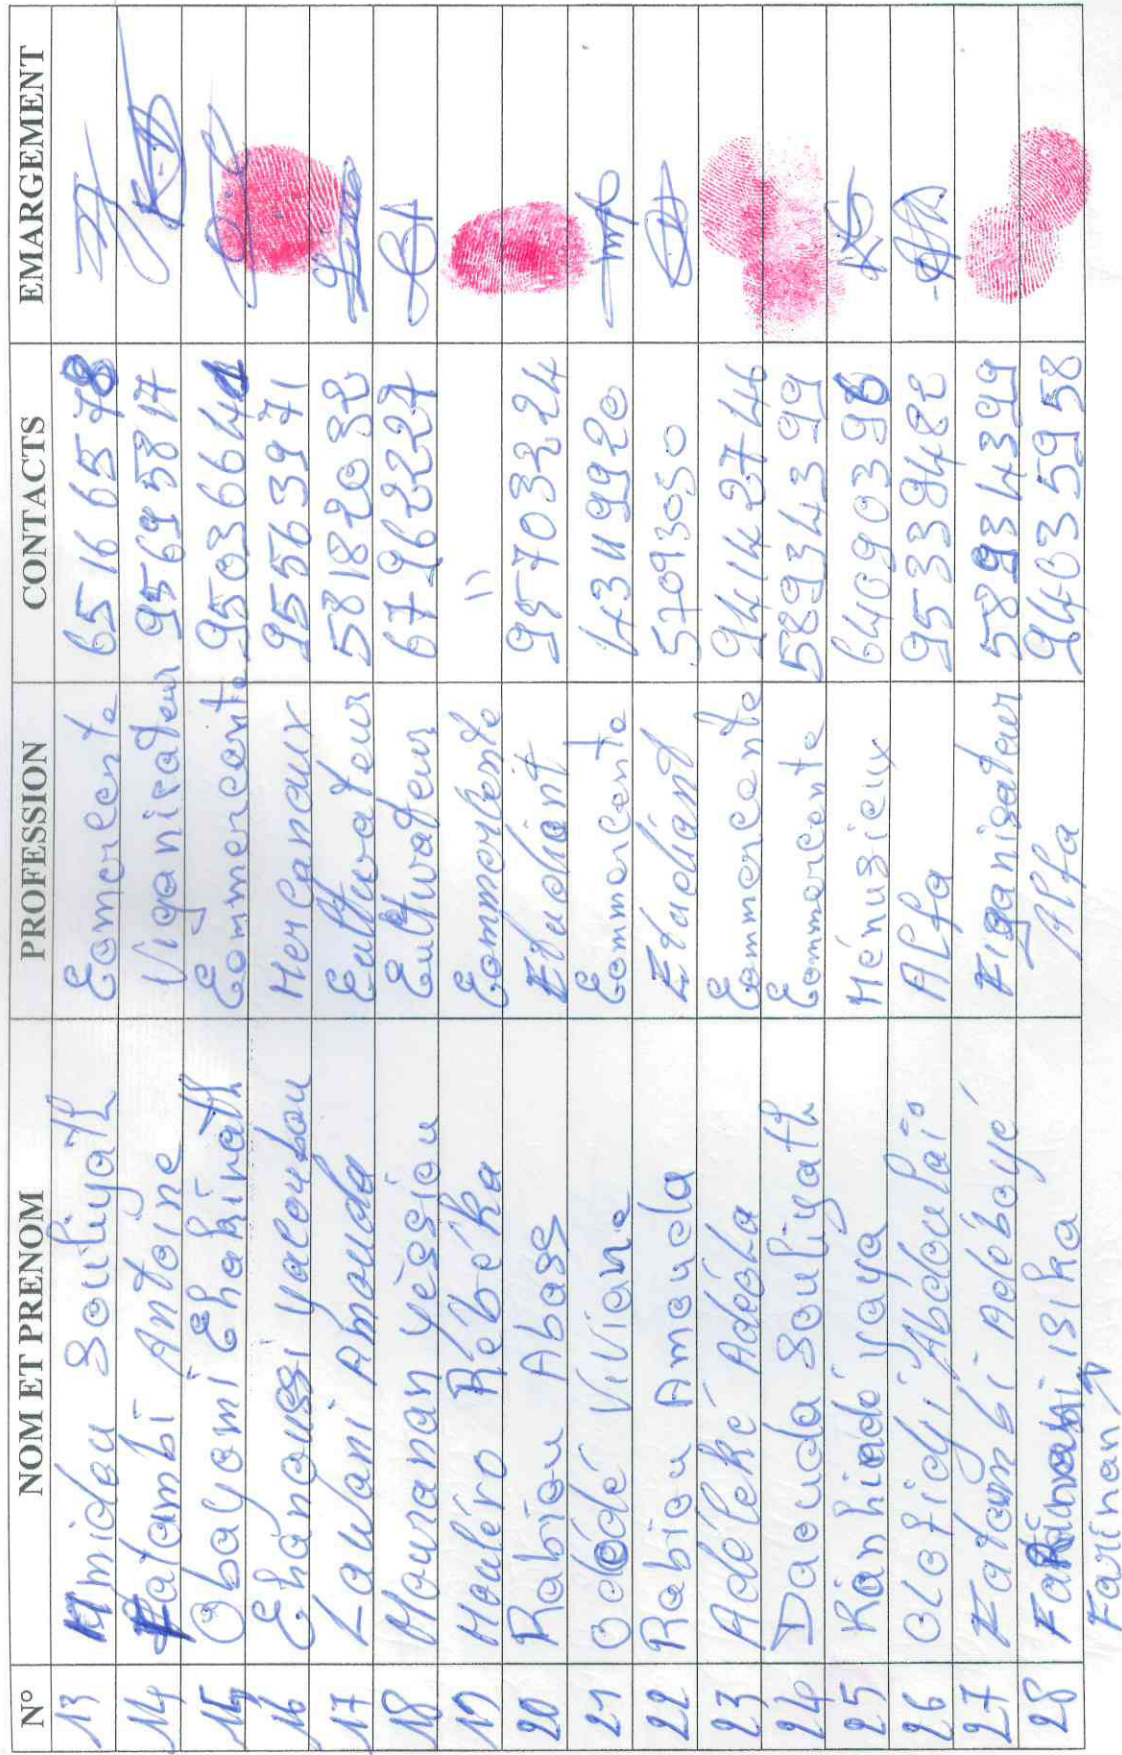 N° NOM ET PRENOM PROFESSION CONTACTS EMARGEMENT
13 Amidou Souliyath Comercente 65166578
14 Fatambi Antoine Viganisateur 95695817
15 Obayomi Chakirath Commercente 95036641
16 Chanoussi Yacoubou Mercanceux 95563971
17 Lawani Amouda Cultivateur 58182032
18 Mouranan Yèssiou Cultivateur 67962227
19 Houléro Rébéka Commercente "
20 Rabiou Abass Etudiant 95703224
21 Odédé Viviane Commercente 43119920
22 Rabiou Amouda Etudiant 57093050
23 Adéléké Adéola Commercente 94427746
24 Daouda Souliyath Commercente 58934399
25 Kanhiadé Yaya Ménusieux 64090396
26 Olofidji Abdoulaï Alfa 95339482
27 Fatambi Adéboyé Figanisateur 58934399
28 Isika Alfa 94035958
Farinan